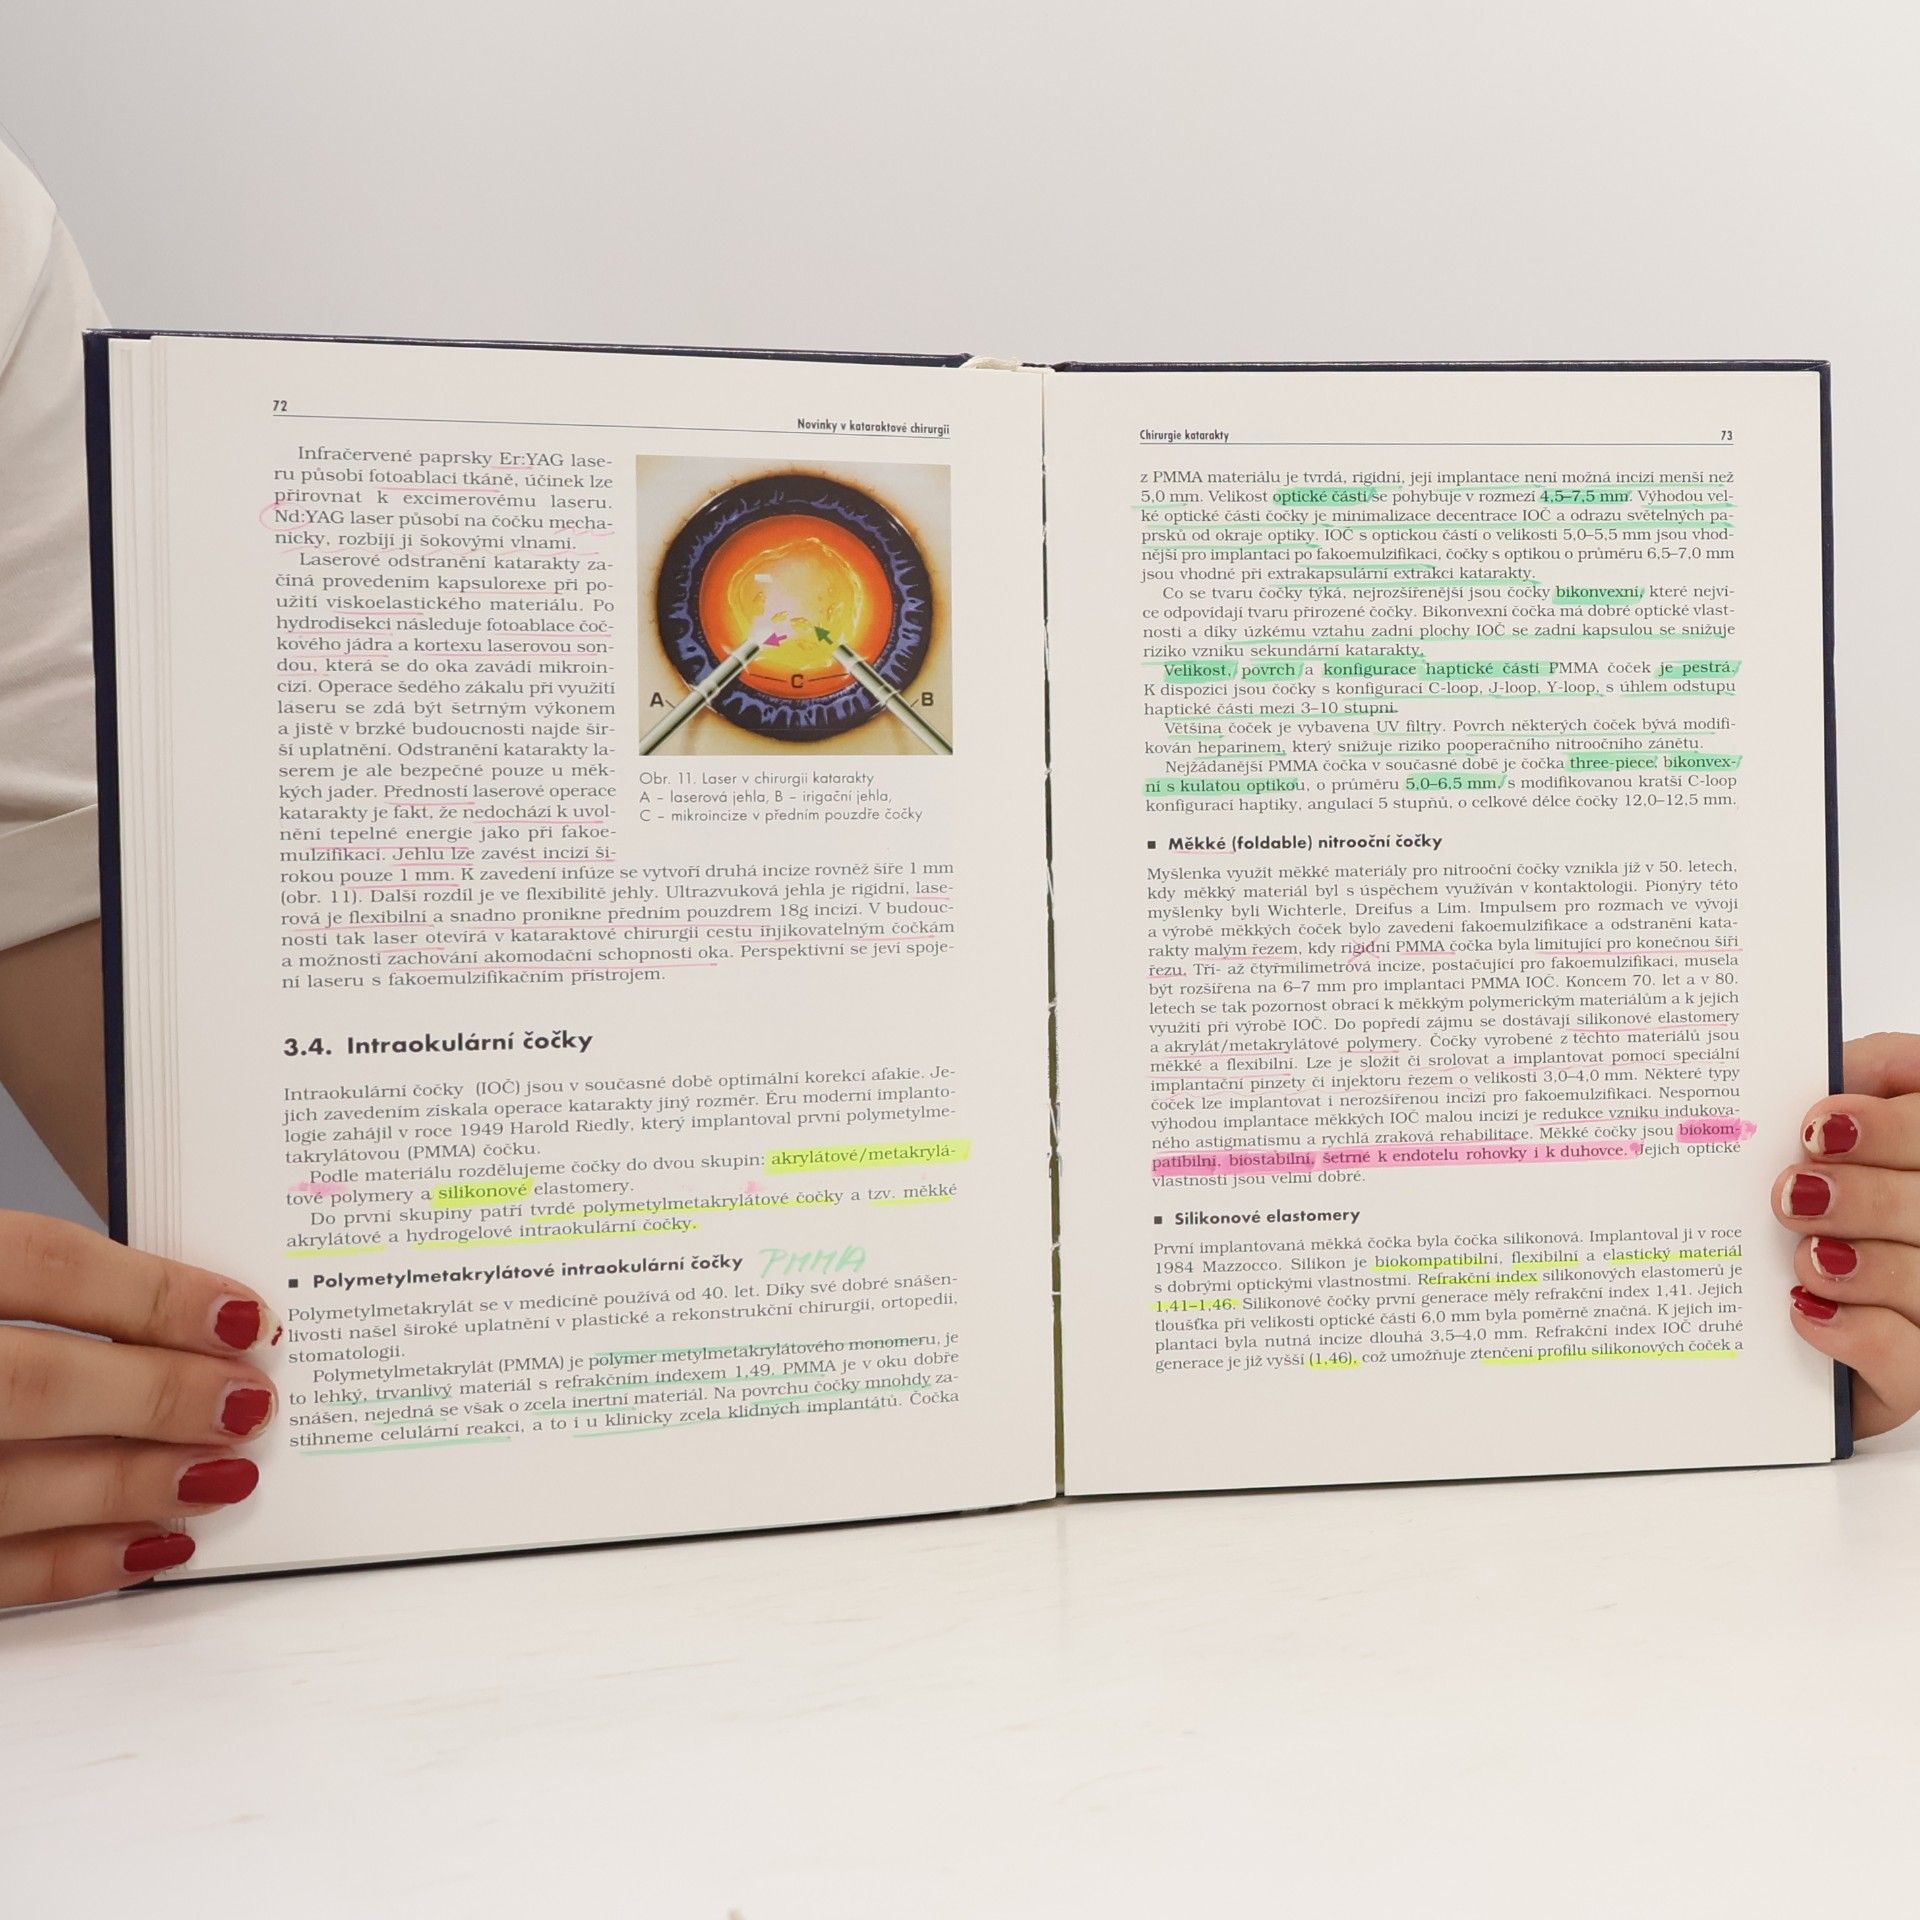 72
Novinky v kataraktové chirurgii
Infračervené paprsky Er:YAG lase-
ru působí fotoablaci tkáně, účinek lze
přirovnat k excimerovému laseru.
Nd:YAG laser působí na čočku mecha-
nicky, rozbíjí ji šokovými vlnami.
Laserové odstranění katarakty za-
číná provedením kapsulorexe při po-
užití viskoelastického materiálu. Po
hydrodisekci následuje fotoablace čoč-
kového jádra a kortexu laserovou son-
dou, která se do oka zavádí mikroin-
cizí. Operace šedého zákalu při využití
laseru se zdá být šetrným výkonem
a jistě v brzké budoucnosti najde šir-
ší uplatnění. Odstranění katarakty la-
serem je ale bezpečné pouze u měk-
kých jader. Předností laserové operace
katarakty je fakt, že nedochází k uvol-
nění tepelné energie jako při fakoe-
mulzifikaci. Jehlu lze zavést incizí ši-
rokou pouze 1 mm. K zavedení infúze se vytvoří druhá incize rovněž šíře 1 mm
(obr. 11). Další rozdíl je ve flexibilitě jehly. Ultrazvuková jehla je rigidní, lase-
rová je flexibilní a snadno pronikne předním pouzdrem 18g incizí. V budouc-
nosti tak laser otevírá v kataraktové chirurgii cestu injikovatelným čočkám
a možnosti zachování akomodační schopnosti oka. Perspektivní se jeví spoje-
ní laseru s fakoemulzifikačním přístrojem.
A
C
B
Obr. 11. Laser v chirurgii katarakty
A – laserová jehla, B – irigační jehla,
C – mikroincize v předním pouzdře čočky
3.4. Intraokulární čočky
Intraokulární čočky (IOČ) jsou v současné době optimální korekcí afakie. Je-
jich zavedením získala operace katarakty jiný rozměr. Éru moderní implanto-
logie zahájil v roce 1949 Harold Riedly, který implantoval první polymetylme-
takrylátovou (PMMA) čočku.
Podle materiálu rozdělujeme čočky do dvou skupin: akrylátové/metakrylá-
tové polymery a silikonové elastomery.
Do první skupiny patří tvrdé polymetylmetakrylátové čočky a tzv. měkké
akrylátové a hydrogelové intraokulární čočky.
■ Polymetylmetakrylátové intraokulární čočky PMMA
Polymetylmetakrylát se v medicíně používá od 40. let. Díky své dobré snášen-
livosti našel široké uplatnění v plastické a rekonstrukční chirurgii, ortopedii,
stomatologii.
Polymetylmetakrylát (PMMA) je polymer metylmetakrylátového monomeru, je
to lehký, trvanlivý materiál s refrakčním indexem 1,49. PMMA je v oku dobře
snášen, nejedná se však o zcela inertní materiál. Na povrchu čočky mnohdy za-
stihneme celulární reakci, a to i u klinicky zcela klidných implantátů. Čočka
Chirurgie katarakty
73
z PMMA materiálu je tvrdá, rigidní, její implantace není možná incizí menší než
5,0 mm. Velikost optické části se pohybuje v rozmezí 4,5–7,5 mm. Výhodou vel-
ké optické části čočky je minimalizace decentrace IOČ a odrazu světelných pa-
prsků od okraje optiky. IOČ s optickou částí o velikosti 5,0–5,5 mm jsou vhod-
nější pro implantaci po fakoemulzifikaci, čočky s optikou o průměru 6,5–7,0 mm
jsou vhodné při extrakapsulární extrakci katarakty.
Co se tvaru čočky týká, nejrozšířenější jsou čočky bikonvexní, které nejví-
ce odpovídají tvaru přirozené čočky. Bikonvexní čočka má dobré optické vlast-
nosti a díky úzkému vztahu zadní plochy IOČ se zadní kapsulou se snižuje
riziko vzniku sekundární katarakty.
Velikost, povrch a konfigurace haptické části PMMA čoček je pestrá.
K dispozici jsou čočky s konfigurací C-loop, J-loop, Y-loop, s úhlem odstupu
haptické části mezi 3–10 stupni.
Většina čoček je vybavena UV filtry. Povrch některých čoček bývá modifi-
kován heparinem, který snižuje riziko pooperačního nitroočního zánětu.
Nejžádanější PMMA čočka v současné době je čočka three-piece, bikonvex-
ní s kulatou optikou, o průměru 5,0–6,5 mm, s modifikovanou kratší C-loop
konfigurací haptiky, angulací 5 stupňů, o celkové délce čočky 12,0–12,5 mm.
■ Měkké (foldable) nitrooční čočky
Myšlenka využít měkké materiály pro nitrooční čočky vznikla již v 50. letech,
kdy měkký materiál byl s úspěchem využíván v kontaktologii. Pionýry této
myšlenky byli Wichterle, Dreifus a Lim. Impulsem pro rozmach ve vývoji
a výrobě měkkých čoček bylo zavedení fakoemulzifikace a odstranění kata-
rakty malým řezem, kdy rigidní PMMA čočka byla limitující pro konečnou šíři
řezu. Tří- až čtyřmilimetrová incize, postačující pro fakoemulzifikaci, musela
být rozšířena na 6–7 mm pro implantaci PMMA IOČ. Koncem 70. let a v 80.
letech se tak pozornost obrací k měkkým polymerickým materiálům a k jejich
využití při výrobě IOČ. Do popředí zájmu se dostávají silikonové elastomery
a akrylát/metakrylátové polymery. Čočky vyrobené z těchto materiálů jsou
měkké a flexibilní. Lze je složit či srolovat a implantovat pomocí speciální
implantační pinzety či injektoru řezem o velikosti 3,0–4,0 mm. Některé typy
čoček lze implantovat i nerozšířenou incizí pro fakoemulzifikaci. Nespornou
výhodou implantace měkkých IOČ malou incizí je redukce vzniku indukova-
ného astigmatismu a rychlá zraková rehabilitace. Měkké čočky jsou biokom-
patibilní, biostabilní, šetrné k endotelu rohovky i k duhovce. Jejich optické
vlastnosti jsou velmi dobré.
■ Silikonové elastomery
První implantovaná měkká čočka byla čočka silikonová. Implantoval ji v roce
1984 Mazzocco. Silikon je biokompatibilní, flexibilní a elastický materiál
s dobrými optickými vlastnostmi. Refrakční index silikonových elastomerů je
1,41–1,46. Silikonové čočky první generace měly refrakční index 1,41. Jejich
tloušťka při velikosti optické části 6,0 mm byla poměrně značná. K jejich im-
plantaci byla nutná incize dlouhá 3,5–4,0 mm. Refrakční index IOČ druhé
generace je již vyšší (1,46), což umožňuje ztenčení profilu silikonových čoček a